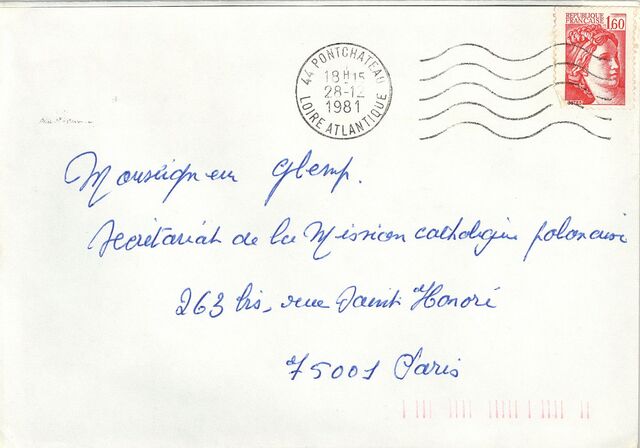 RÉPUBLIQUE
FRANÇAISE
1,60
44 PONTCHATEAU
18H15
28-12
1981
LOIRE ATLANTIQUE
Monseigneur Glemp.
Secrétariat de la Mission catholique polonaise
263 bis, rue Saint Honoré
75001 Paris